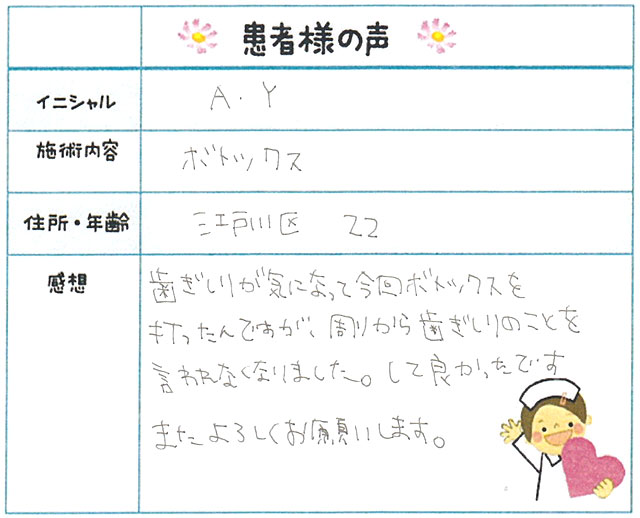 患者様の声
イニシャル A.Y
施術内容 ボトックス
住所・年齢 江戸川区 22
感想 歯ぎしりが気になって今回ボトックスを
打ったんですが、周りから歯ぎしりのことを
言われなくなりました。して良かったです
またよろしくお願いします。